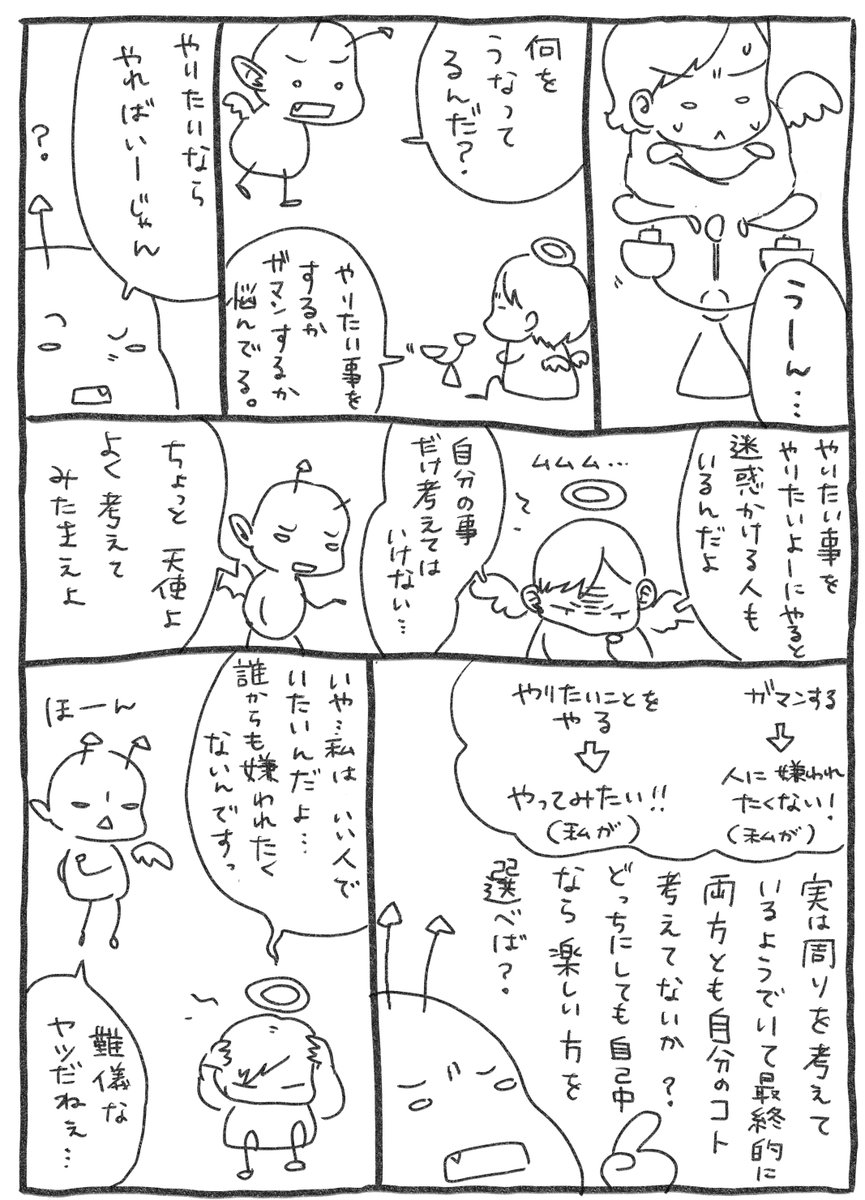 うーん…
何を
うなって
るんだ?
やりたい事を
するか
ガマンするか
悩んでる。
やりたいなら
やればいーじゃん
?。
やりたい事を
やりたいよーにやると
迷惑かける人も
いるんだよ
ムムム…
自分の事
だけ考えては
いけない…
ちょっと 天使よ
よく考えて
みたまえよ
ガマンする
⇩
人に嫌われ
たくない!
(私が)
やりたいことを
やる
⇩
やってみたい!!
(私が)
実は周りを考えて
いるようでいて最終的に
両方とも自分のコト
考えてないか?
どっちにしても自己中
なら楽しい方を
選べば?。
いや…私は いい人で
いたいんだよ…
誰からも嫌われたく
ないんですっ
ほーん
難儀な
ヤツだねぇ…